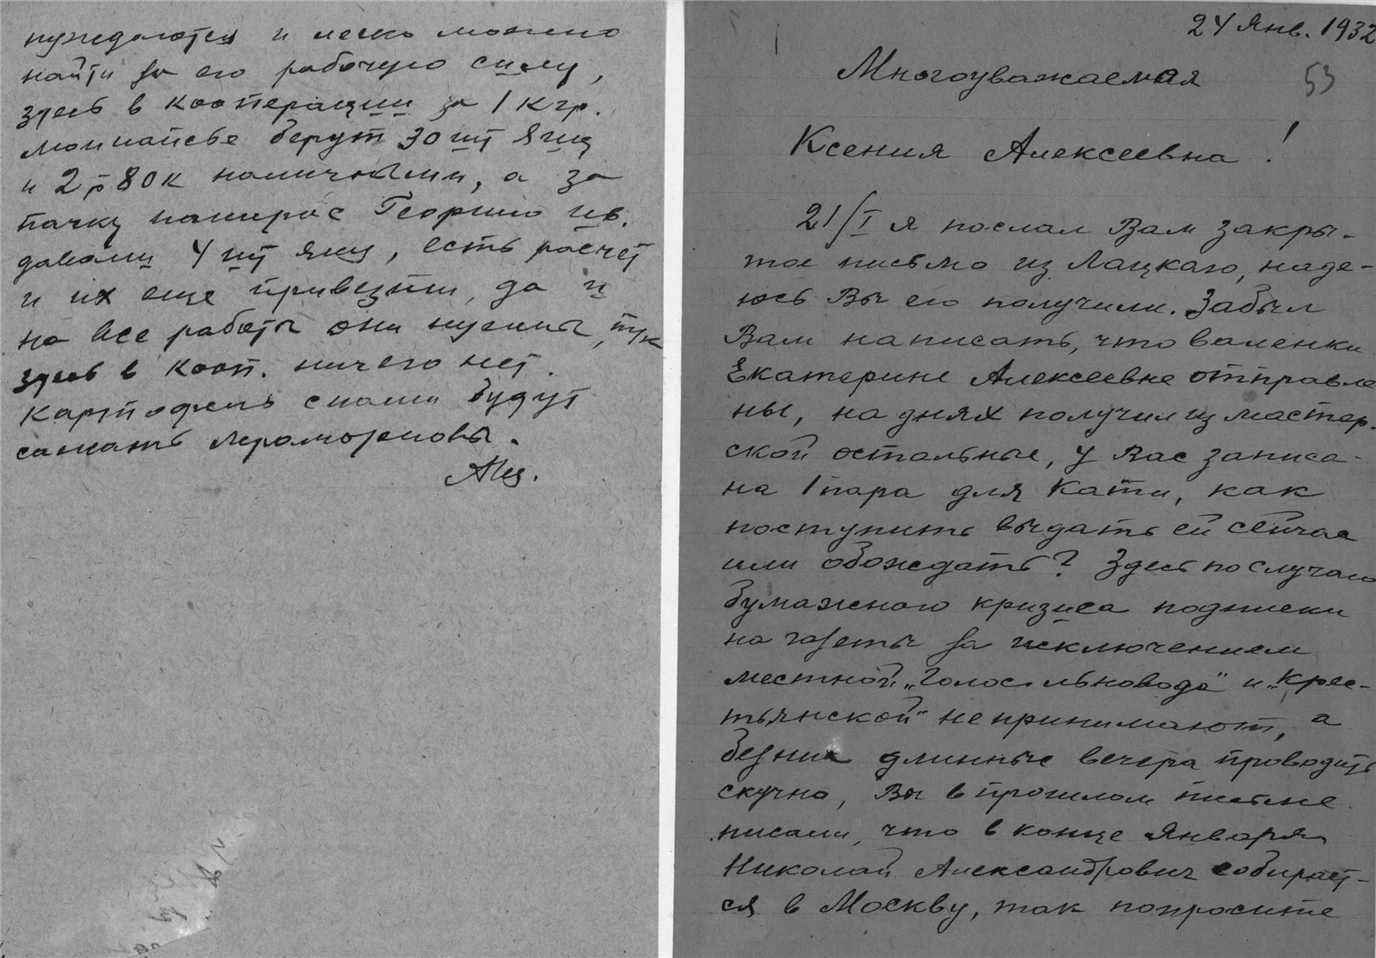 нуждаются и легко можно
найти за его рабочую силу,
здесь в кооперации за 1 кгр.
монпансье берут 30 шт яиц
и 2р 80к наличными, а за
пачку папирос Георгию Ив.
давали 4 шт яиц, есть расчет
и их еще привезти, да и
на все работы они нужны, т.к
здесь в кооп. ничего нет.
Картофель с нами будут
сажать
24 Янв. 1932
53
Многоуважаемая
Ксения Алексеевна!
21/I я послал Вам закры-
тое письмо из Лацкаго, наде-
юсь Вы его получили. Забыл
Вам написать, что валенки
Екатерине Алексеевне отправле
ны, на днях получил из мастер-
ской остальные, у Вас записа-
на 1 пара для Кати, как
поступить выдать ей сейчас
или обождать? Здесь по случаю
бумажного кризиса подписки
на газеты за исключением
местной „Голос льновода" и „Крес-
тьянской" не принимают, а
без них длинные вечера проводить
скучно, Вы в прошлом письме
писали, что в конце Января
Николай Александрович собирает-
ся в Москву, так попросите